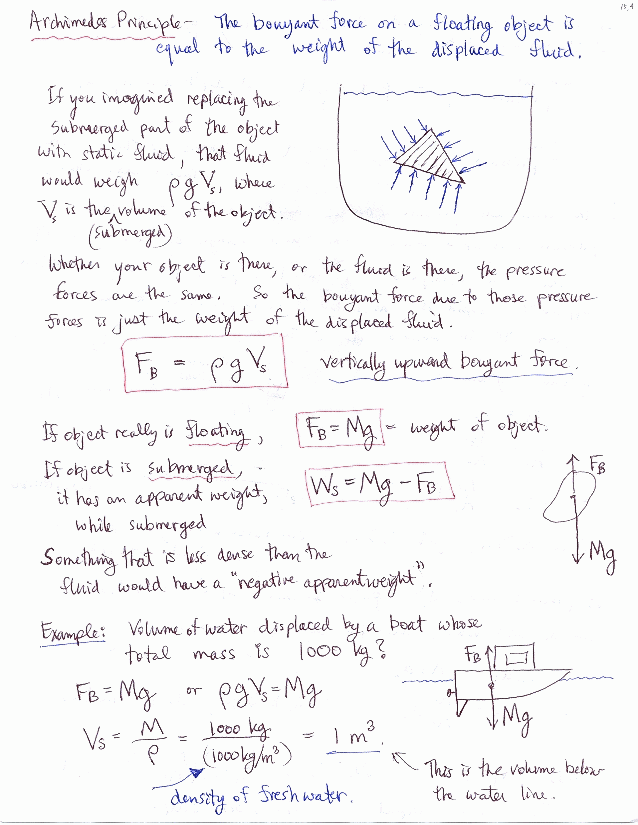 13,4
Archimedes Principle - The bouyant force on a floating object is
equal to the weight of the displaced fluid.
If you imagined replacing the
submerged part of the object
with static fluid, that fluid
would weigh ρgVs, where
Vs is the volume of the object.
(submerged)
Whether your object is there, or the fluid is there, the pressure
forces are the same. So the bouyant force due to those pressure
forces is just the weight of the displaced fluid.
FB = ρgVs vertically upward bouyant force.
If object really is floating, FB = Mg = weight of object.
If object is submerged,
it has an apparent weight, Ws = Mg - FB
while submerged
FB
Mg
Something that is less dense than the
fluid would have a "negative apparent weight".
Example: Volume of water displaced by a boat whose
total mass is 1000 kg?
FB = Mg or ρgVs = Mg
FB
Mg
Vs = M/ρ = 1000 kg/(1000kg/m³) = 1 m³.
density of fresh water.
This is the volume below
the water line.